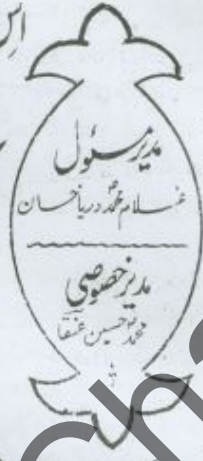 اس
مدیر مسئول
غلام محمد دریا خان
مدیر خصوصی
محمد حسین عنقا